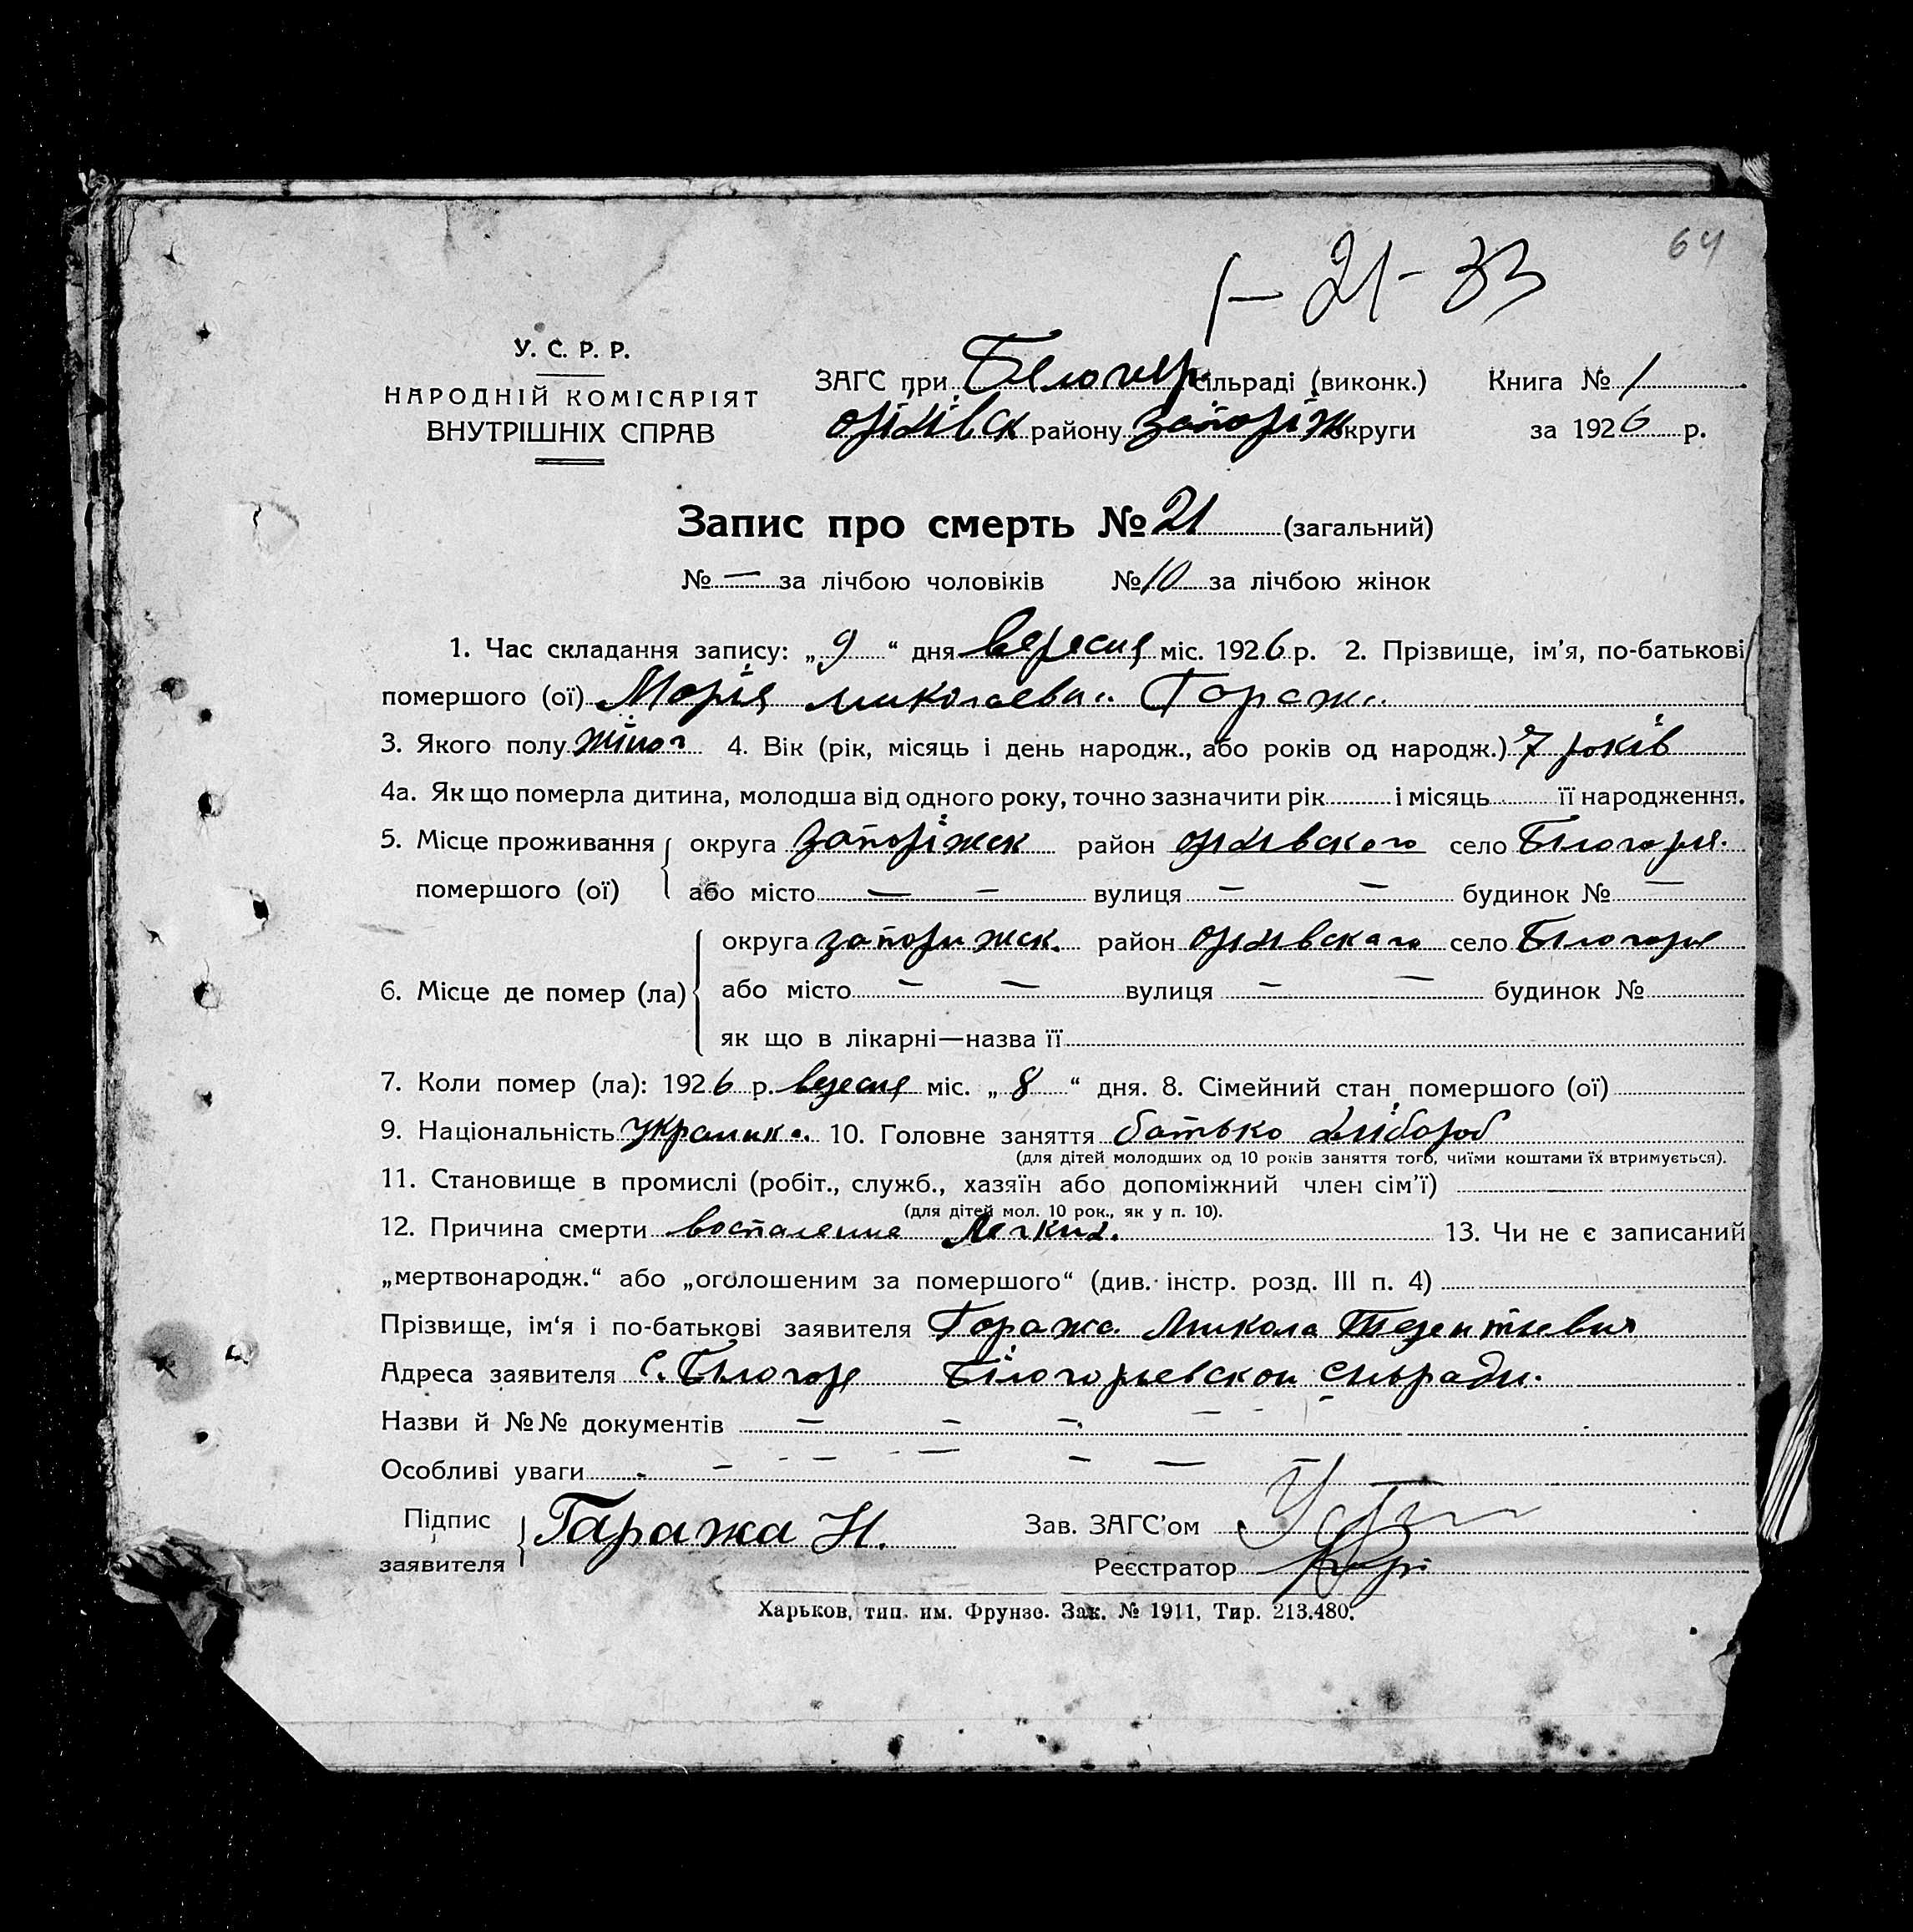 64
1 – 21 - 33
У. С. Р. Р.
НАРОДНІЙ КОМІСАРІЯТ
ВНУТРІШНІХ СПРАВ
ЗАГС при сільраді (виконк.) Книга № 1
району Запоріж округи за 1926 р.
Запис про смерть № 21 (загальний)
№ — за лічбою чоловіків № 10 за лічбою жінок
1. Час складання запису: „ 9 “ дня вересня міс. 1926 р. 2. Прізвище, ім’я, по-батькові
помершого (ої) Марія миколаевна Гаража
3. Якого полу жіноч 4. Вік (рік, місяць і день народж., або років од народж.) 7 років
4а. Як що померла дитина, молодша від одного року, точно зазначити рік і місяць її народження.
5. Місце проживання округа запоріжск район оріхівского село Білогоря.
помершого (ої) або місто — – вулиця – – будинок № —
округа запорижск. район оріхивскаго село Білогорье
6. Місце де помер (ла) або місто – — вулиця – — будинок №
як що в лікарні—назва її
7. Коли помер (ла): 1926 р. вересня міс. „ 8 “ дня. 8. Сімейний стан помершого (ої)
9. Національність украинка. 10. Головне заняття батько хлібороб
(для дітей молодших од 10 років заняття того, чиїми коштами їх втримується).
11. Становище в промислі (робіт., служб., хазяїн або допоміжний член сім’ї)
(для дітей мол. 10 рок., як у п. 10).
12. Причина смерти воспаление Легких. 13. Чи не є записаний
„мертвонародж.“ або „оголошеним за помершого“ (див. інстр. розд. III п. 4)
Прізвище, ім‘я і по-батькові заявителя Гаража Микола
Адреса заявителя с. Білогоре Білогорьевскои сильради.
Назви й №№ документів – – –
Особливі уваги – – –
Підпис Гаража Н. Зав. ЗАГС’ом
заявителя Реєстратор
Харьков, тип. им. Фрунзе. Зак. № 1911, Тир. 213.480.